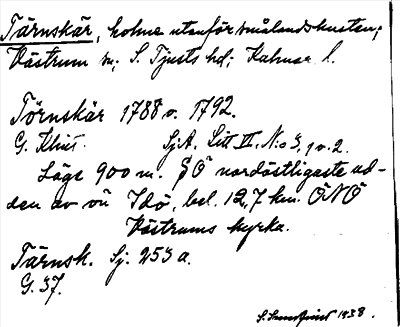 Tärnskär, holme utanför smålandskusten;
Västrum sn; S. Tjusts hd; Kalmar l.
Törnskär 1788 o. 1792.
G. Klint. SjA. Litt II, N:o 3, 1 o. 2.
Läge 900 m. SO nordöstligaste ud-
den av ön Idö, bel. 12,7 km. ONO
Västrums kyrka.
Tärnsk. Sj. 253 a.
G. 37.
S. 1938.